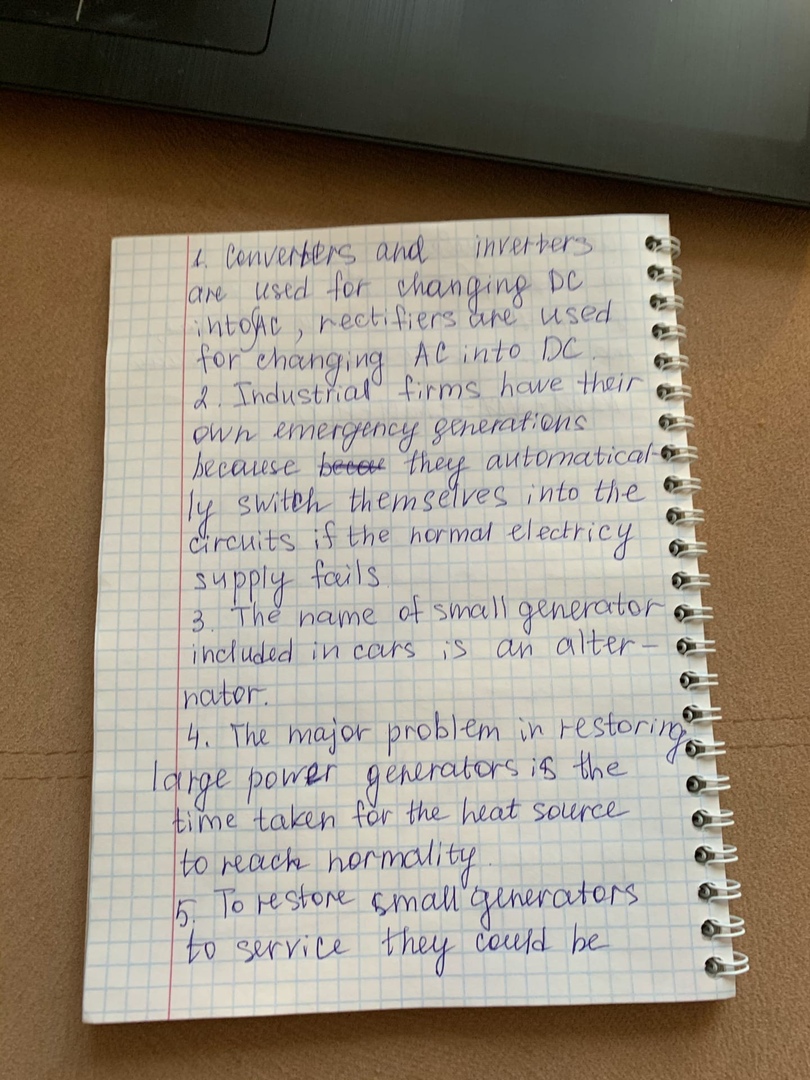 1. Converters and inverters
are used for changing DC
into AC, rectifiers are used
for changing AC into DC.
2. Industrial firms have their
own emergency generations
because becou they automatical-
ly switch themselves into the
circuits if the normal electricy
supply fails.
3. The name of small generator
included in cars is an alter-
nator.
4. The major problem in restoring
large power generators is the
time taken for the heat source
to reach normality.
5. To restore small generators
to service they could be